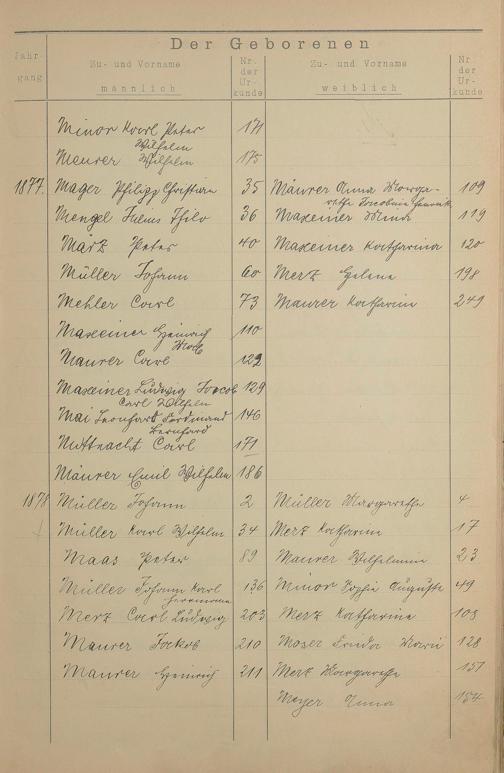 Der Geborenen
Jahrgang Zu- und Vorname männlich Nr. der Urkunde Zu- und Vorname weiblich Nr. der Urkunde
Minor Karl Peter 171
Wilhelm
Meurer Wilhelm 175
1877. Mager Philipp Christian 35 Mäurer Anna Marga- 109
rethe Jacobine
Mengel Julius Thilo 36 Maxeiner 119
März Peter 40 Maxeiner Katharina 120
Müller Johann 60 Merz Helene 198
Mehler Carl 73 Maurer Katharin 249
Maxeiner Heinrich 110
Maurer Carl 122
Maxeiner Ludwig Jacob 129
Carl Wilhelm
Mai Leonhard Ferdinand 146
Bernhard
Mittnacht Carl 171
Mäurer Emil Wilhelm 186
1878 Müller Johann 2 Müller Margarethe 4
Müller Karl Wilhelm 34 Merz Katharine 17
Maas Peter 89 Maurer Wilhelmine 23
Müller Johann Karl 136 Minor Sophie Auguste 49
Herrmann
Merz Carl Ludwig 203 Merz Katharine 103
Maurer Jakob 210 Moser Linda Marie 128
Maurer Heinrich 211 Merz Margarethe 151
Meyer Anna 154